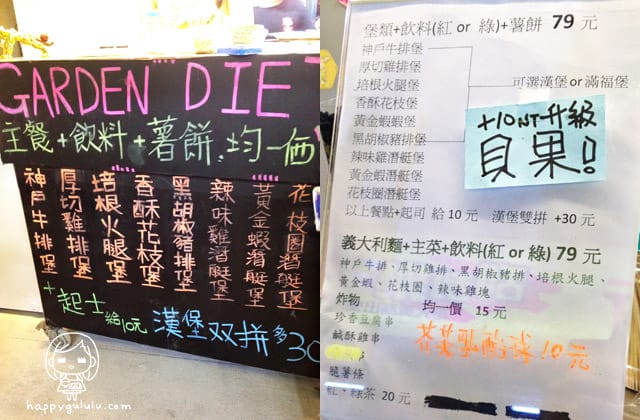 GARDEN DIE
主餐+飲料+薯餅.均一価
神戶牛排堡
厚切雞排堡
培根火腿堡
香酥花枝堡
黑胡椒豬排堡
辣味雞潛艇堡
黃金蝦潛艇堡
花枝圈潛艇堡
+起士 給10元 漢堡双拼 多30
happygululu.com
堡類+飲料(紅 or 綠)+薯餅 79 元
神戶牛排堡
厚切雞排堡
培根火腿堡
香酥花枝堡
黃金蝦蝦堡
黑胡椒豬排堡
辣味雞潛艇堡
黃金蝦潛艇堡
花枝圈潛艇堡
可選漢堡or 滿福堡
+10NT升級
貝果!
以上餐點+起司 給 10 元 漢堡雙拼 +30 元
義大利麵+主菜+飲料(紅 or 綠) 79 元
神戶牛排、厚切雞排、黑胡椒豬排、培根火腿、
黃金蝦、花枝圈、辣味雞塊
炸物 均一價 15 元
珍香豆腐串
鹹酥雞串
脆薯條
紅、綠茶 20 元
10元